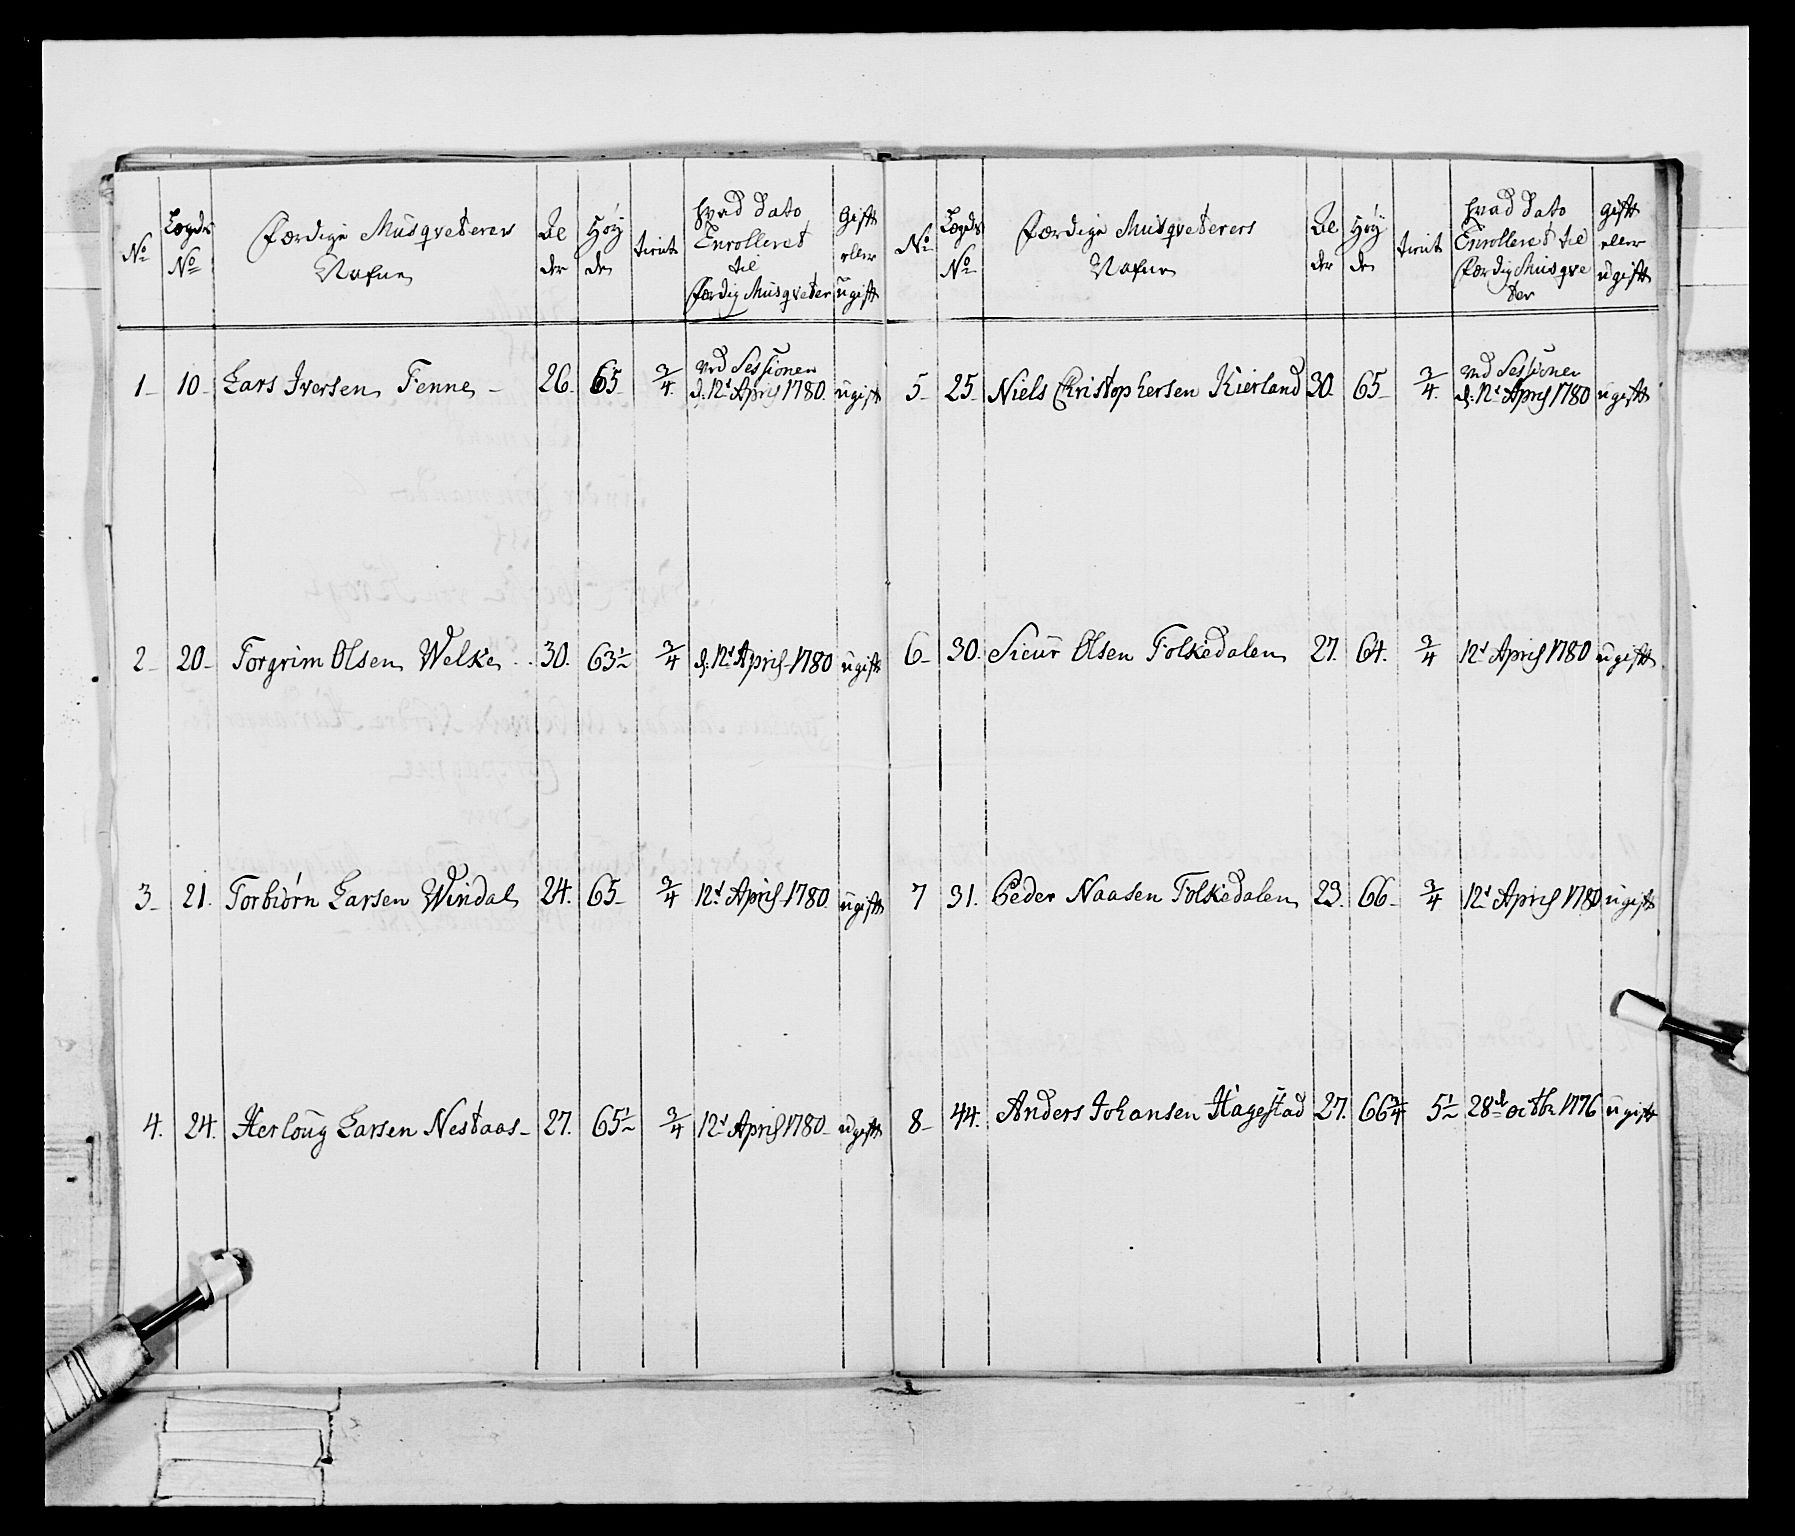 No Lægds No Færdige Musqveterers Nafne Al der Høy de tienist hvad Dato Enrolleret til færdig Musqveter Gift eller ugift
1 10 Lars Iversen Tenne 26. 65 3/4. ved Sessionen d: 12t April 1780. ugift
2 20 Torgrim Olsen Welke 30. 63½ 3/4 d: 12t April 1780 ugift
3 21. Torbiørn Larsen Windal 24. 65 3/4 12t April 1780 ugift
4. 24. Herloug Larsen Nestaas 27. 65½ 3/4 12t April 1780 ugift
No Lægds No Færdige Musqveterers Nafne Al der Høy de tienist hvad Dato Enrolleret til færdig Musqve ter gift eller ugift
5 25. Niels Christophersen Kierland 30. 65 3/4. ved Sessionen d: 12t April 1780 ugift
6 30. Siur Olsen Folkedalen 27. 64. 3/4 12t April 1780 ugift
7 31. Peder Naasen Folkedalen 23. 66 3/4 12t April 1780 ugift
8 44. Anders Johansen Hagestad 27. 66 3/4 5½ 28de octbr 1776 ugift